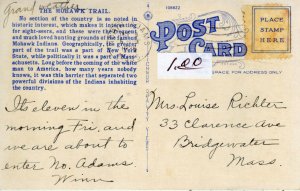 Grand weather
THE MOHAWK TRAIL.
No section of the country is so noted in
historic interest, which makes it interesting
for sight-seers, and these were the frequent
and much loved hunting grounds of the famed
Mohawk Indians. Geographically, the greater
part of the trail was a part of New York
State, while politically it was a part of Massa-
chusetts. Long before the coming of the white
men to America, how many years nobody
knows, it was this barrier that separated two
powerful divisions of the Indians inhabiting
the country.
108822
POST
CARD
PLACE
STAMP
HERE
1.00
SPACE FOR ADDRESS ONLY
Its eleven in the
morning Fri, and
we are about to
enter No. Adams.
Winn
Mrs. Louise Richter
33 Clarence Ave
Bridgewater
Mass.